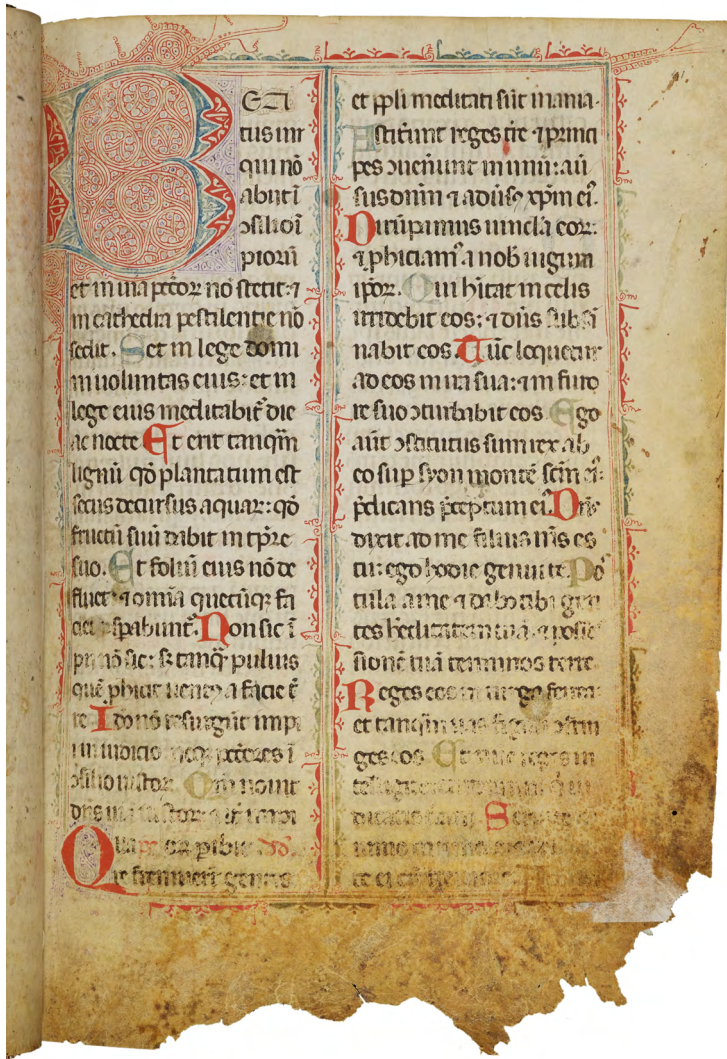 B EAT
tus uir
qui nō
abiit ī
ꝯsilio ī
piorū
et in uia pctōꝝ nō stetit: ⁊
in cathedra pestilentie nō
sedit. Set in lege domi
ni uoluntas eius: et in
lege eius meditabit᷑ die
ac nocte Et erit tanq̄m
lignū qđ plantatum est
secus decursus aquaꝝ: qđ
fructū suū dabit in tp̄re
suo. Et foliū eius nō de
fluet: ⁊ omīa quecūqꝫ fa
ciet ꝓspabunt᷑. Non sic ī
pii nō sic: s; tanqꝫ puluis
quē ꝓhicit uentꝯ a facie t̄
re Ido nō resurgūt impi
ī in iudicio neqꝫ pctōres ī
ꝯsilio iustoꝝ. Qm̄ nouit
dn̄s uiā iustoꝝ: ⁊ it̄ impi
Quare
Qre fremuerūt gentes
et ppli meditati sūt inania.
Astiterunt reges tr̄e ⁊ princi
pes ꝯuenerunt in unū: aū
sus dnm̄ ⁊ aduīsꝯ xpm̄ ei᷒.
Dirūpimus uincla eoꝝ:
⁊ ꝓhiciam᷒ a nob iugum
ipoꝝ. Qui hītat in celis
irridebit eos: ⁊ dn̄s subsā
nabit eos Tūc loquetur
ad eos in ira sua: ⁊ in furo
re suo ꝯturbabit eos Ego
aūt ꝯstitutus sum rex ab
eo sup syon montē scm̄ ei᷒:
p̄dicans p̄ceptum ei᷒. Dn̄s
dixit ad me filius mīs es
tu: ego hodie genui te. Pos
tula a me ⁊ dabo tibi gen
tes hēditatem tuā. ⁊ posses
sionē tuā terminos terre
Reges eos in uirga ferrea:
et tanq̄m uas figuli ꝯfrin
ges eos Et nunc reges in
telligite
Seruite